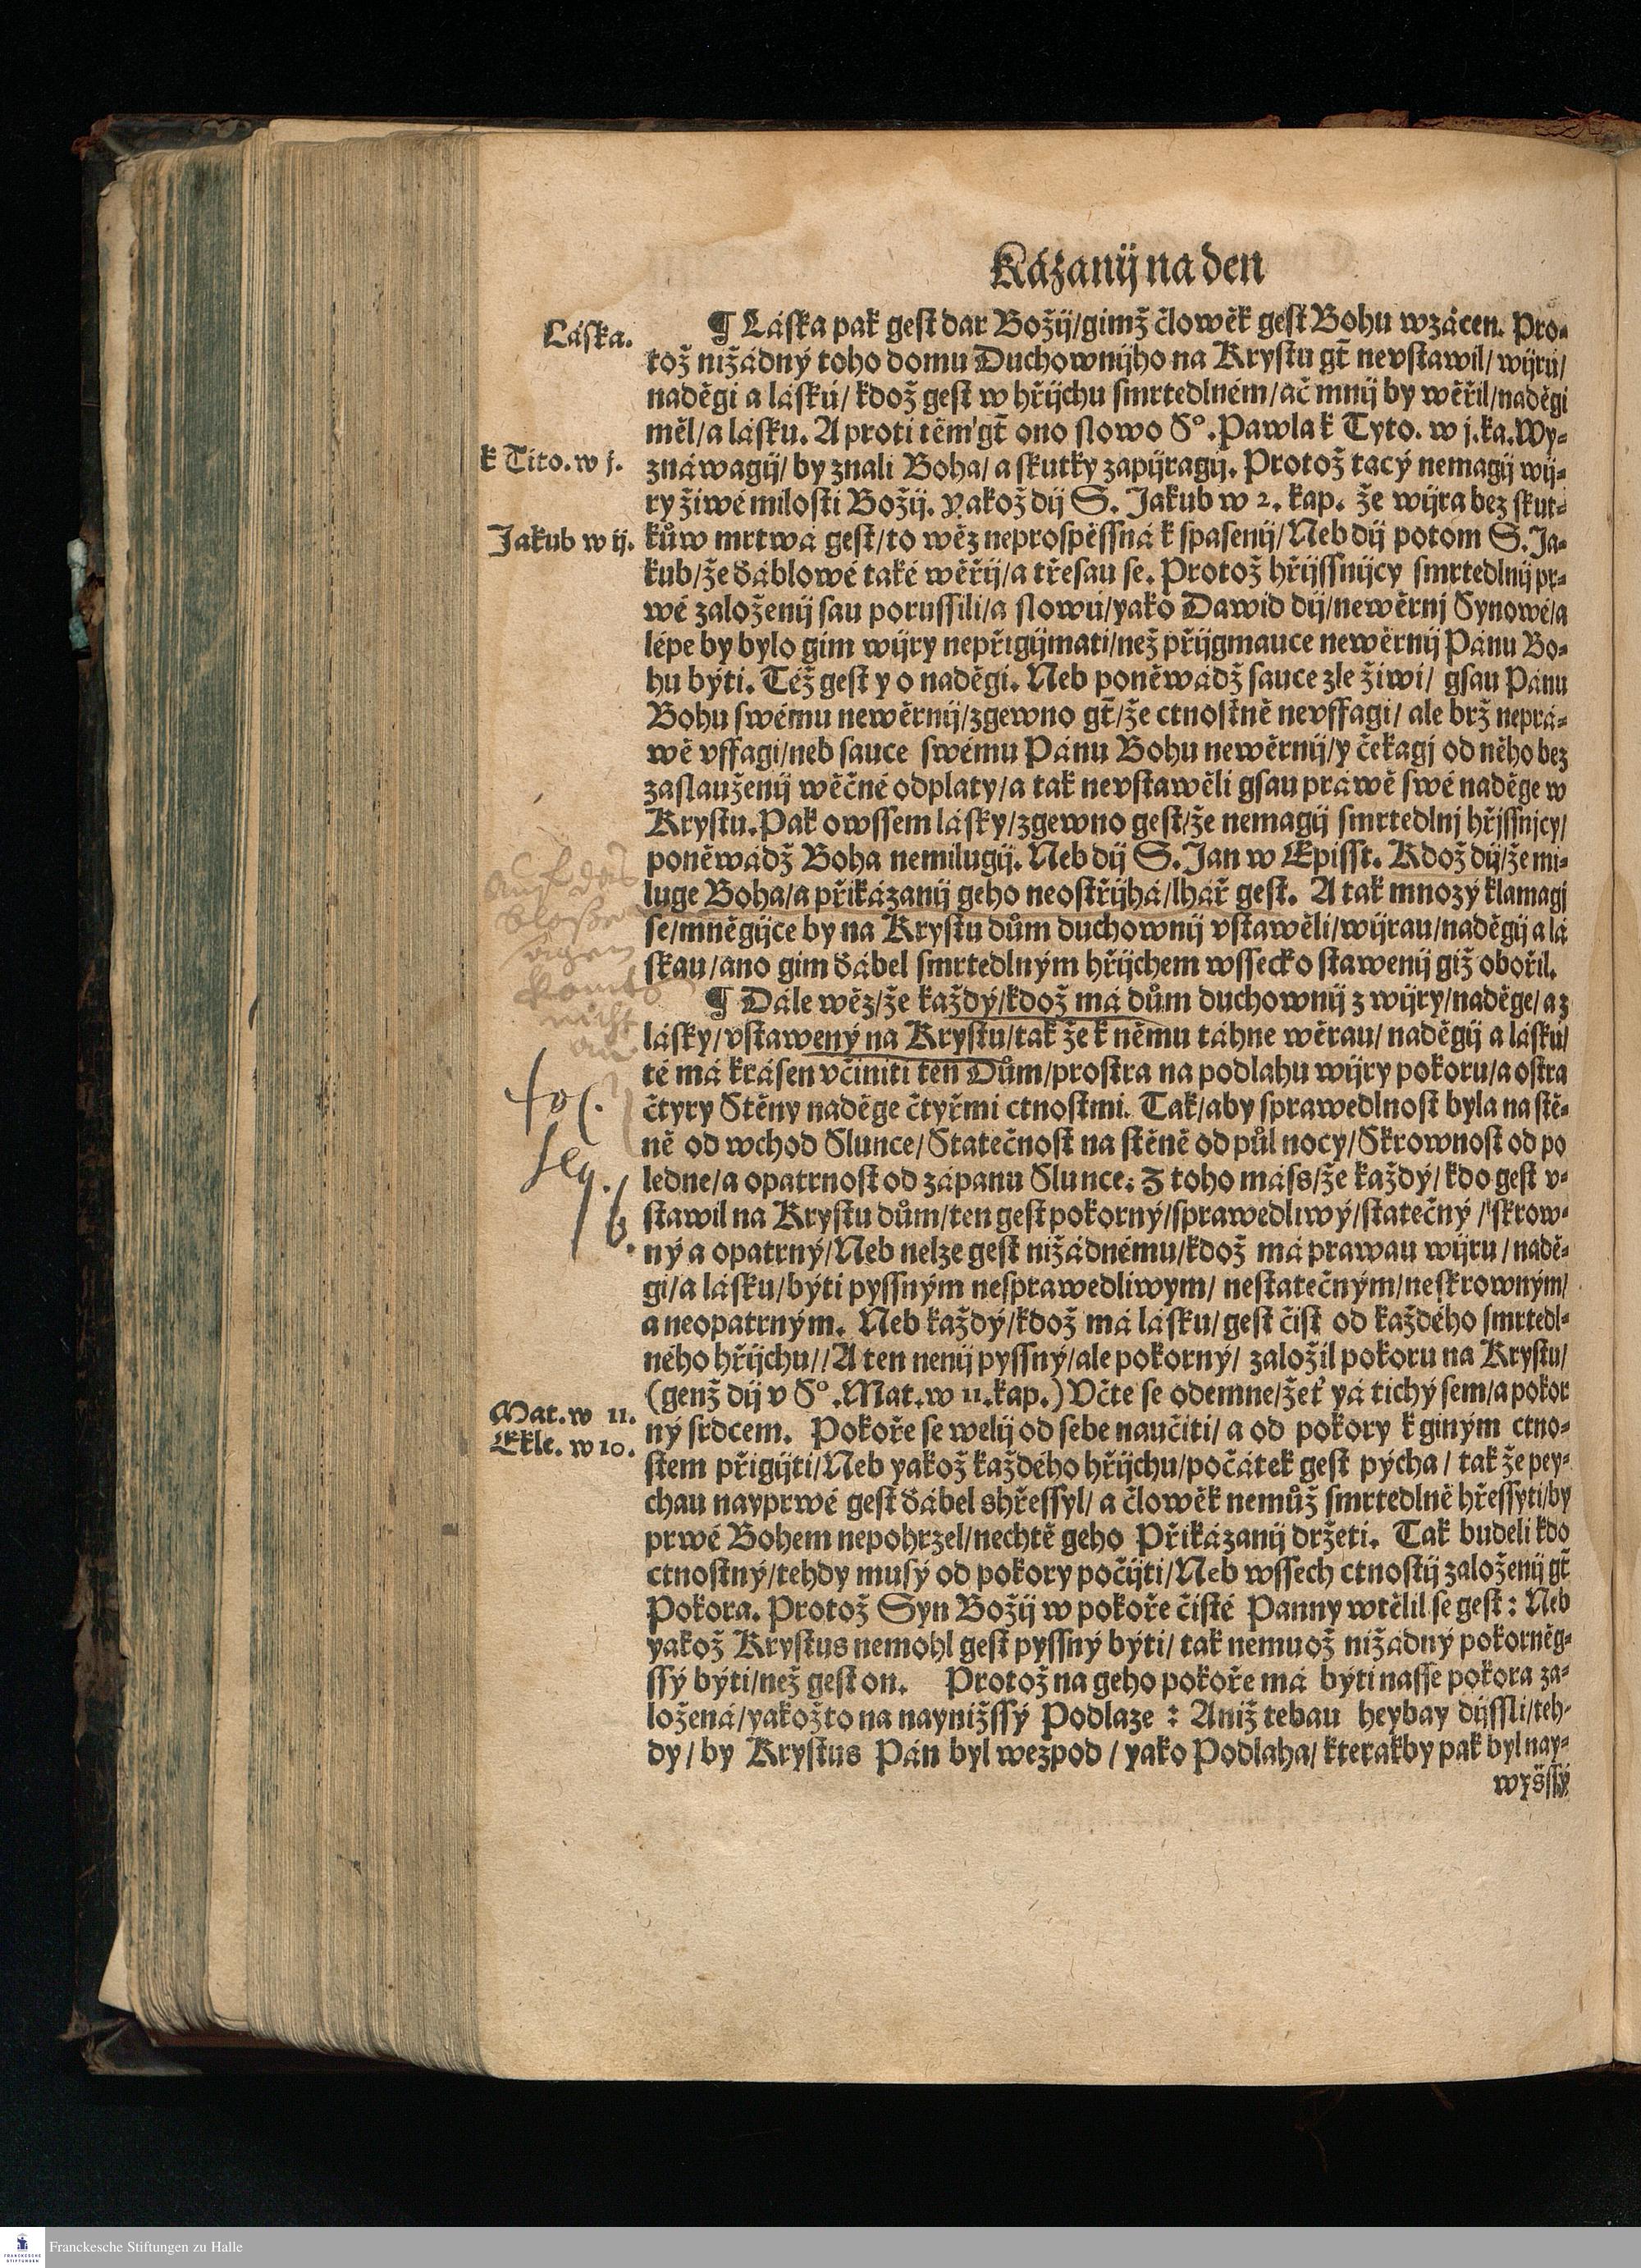 Kázanij na den
Láska.
¶ Láska pak gest dar Božij/gimž člowěk gest Bohu wzácen. Pro-
tož nižádný toho domu Duchownijho na Krystu gt̃ nevstawil/ wijrú/
naděgi a láskú/ kdož gest w hřijchu smrtedlném/ač mnij by wěřil/naděgi
měl/a lásku. A proti těm'gt̃ ono slowo S°. Pawla k Tyto. w j.ka.Wy-
k Tito. w j.
znáwagij/ by znali Boha/ a skutky zapijragij. Protož tacý nemagij wij-
ry žiwé milosti Božij. Yakož dij S. Jakub w 2. kap. že wijra bez skut-
Jakub w ij.
kůw mrtwá gest/to wěz neprospěssná k spasenij/Neb dij potom S. Ja-
kub/že ďáblowé také wěřij/a třesau se. Protož hřijssnijcy smrtedlnij pr-
wé založenij sau porussili/a slowú/yako Dawid dij/newěrnj Synowé/a
lépe by bylo gim wijry nepřigijmati/než přijgmauce newěrnij Pánu Bo-
hu býti. Též gest y o naděgi. Neb poněwádž sauce zle žiwi/ gsau Pánu
Bohu swému newěrnij/zgewno gt̃/že ctnostně nevffagi/ ale brž neprá-
wě vffagi/neb sauce swému Pánu Bohu newěrnij/y čekagj od něho bez
zaslauženij wěčné odplaty/a tak nevstawěli gsau práwě swé naděge w
Krystu. Pak owssem lásky/zgewno gest/že nemagij smrtedlnj hřjssnjcy/
poněwádž Boha nemilugij. Neb dij S. Jan w Episst. Kdož dij/že mi-
luge Boha/a přikázanij geho neostřijhá/lhář gest. A tak mnozý klamagj
se/mněgijce by na Krystu dům duchownij vstawěli/wijrau/naděgij a lá
skau/ano gim ďábel smrtedlným hřijchem wssecko stawenij giž obořil.
auf das
bloße
sagen
komts
nicht
an.
¶ Dále wěz/že každý/kdož má dům duchownij z wijry/naděge/a z
lásky/vstawený na Krystu/tak že k němu táhne wěrau/ naděgij a láskú/
té má krásen včiniti ten Dům/prostra na podlahu wijry pokoru/a ostra
čtyry Stěny naděge čtyřmi ctnostmi. Tak/aby sprawedlnost byla na stě-
ně od wchod Slunce/Statečnost na stěně od půl nocy/Skrownost od po
ledne/a opatrnost od zápanu Slunce: Z toho máss/že každý/ kdo gest v-
stawil na Krystu dům/ten gest pokorný/sprawedliwý/statečný /skrow-
ný a opatrný/Neb nelze gest nižádnému/kdož má prawau wijru/nadě-
gi/a lásku/býti pyssným nesprawedliwym/ nestatečným/neskrowným/
a neopatrným. Neb každý/kdož má lásku/gest čist od každého smrtedl-
ného hřijchu//A ten nenij pyssný/ale pokorný/ založil pokoru na Krystu/
fol.
seq.
b.
(genž dij v S°. Mat. w 11.kap.) Včte se odemne/žeť yá tichý sem/a pokor
Mat. w 11.
ný srdcem. Pokoře se welij od sebe naučiti/ a od pokory k giným ctno-
Ekle. w 10.
stem přigijti/Neb yakož každého hřijchu/počátek gest pýcha/ tak že pey-
chau nayprwé gest ďábel shřessyl/ a člowěk nemůž smrtedlně hřessyti/by
prwé Bohem nepohrzel/nechtě geho Přikázanij držeti. Tak budeli kdo
ctnostný/tehdy musý od pokory počijti/Neb wssech ctnostij založenij gt̃
Pokora. Protož Syn Božij w pokoře čisté Panny wtělil se gest: Neb
yakož Krystus nemohl gest pyssný býti/ tak nemuož nižádný pokorněg-
ssý býti/než gest on. Protož na geho pokoře má býti nasse pokora za-
ložená/yakožto na naynižssý Podlaze : Aniž tebau heybay dijssli/teh-
dy/ by Krystus Pán byl wezpod / yako Podlaha/ kterakby pak byl nay-
wyšssý
Franckesche Stiftungen zu Halle